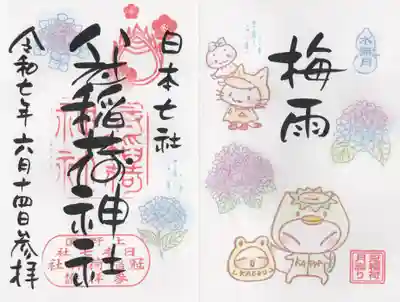 水無月
梅雨
KAERU
KAPPA
冠稲荷
月参り
日本七社
冠稲荷神社
令和七年 六月十四日参拝